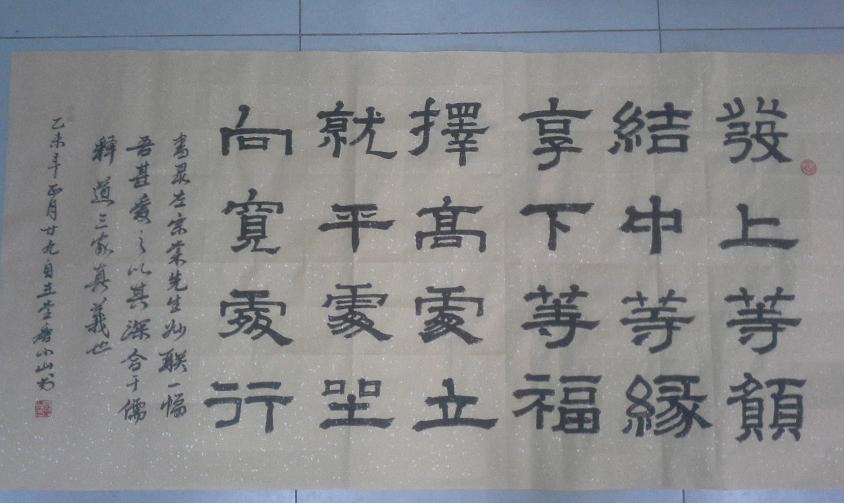 發上等願
結中等緣
享下等福
擇高處立
就平處坐
向寬處行
書录左宗棠先生妙联一幅
吾甚愛之以其深合于儒
释道三家真義也
乙未年正月廿九自在堂唐小山书